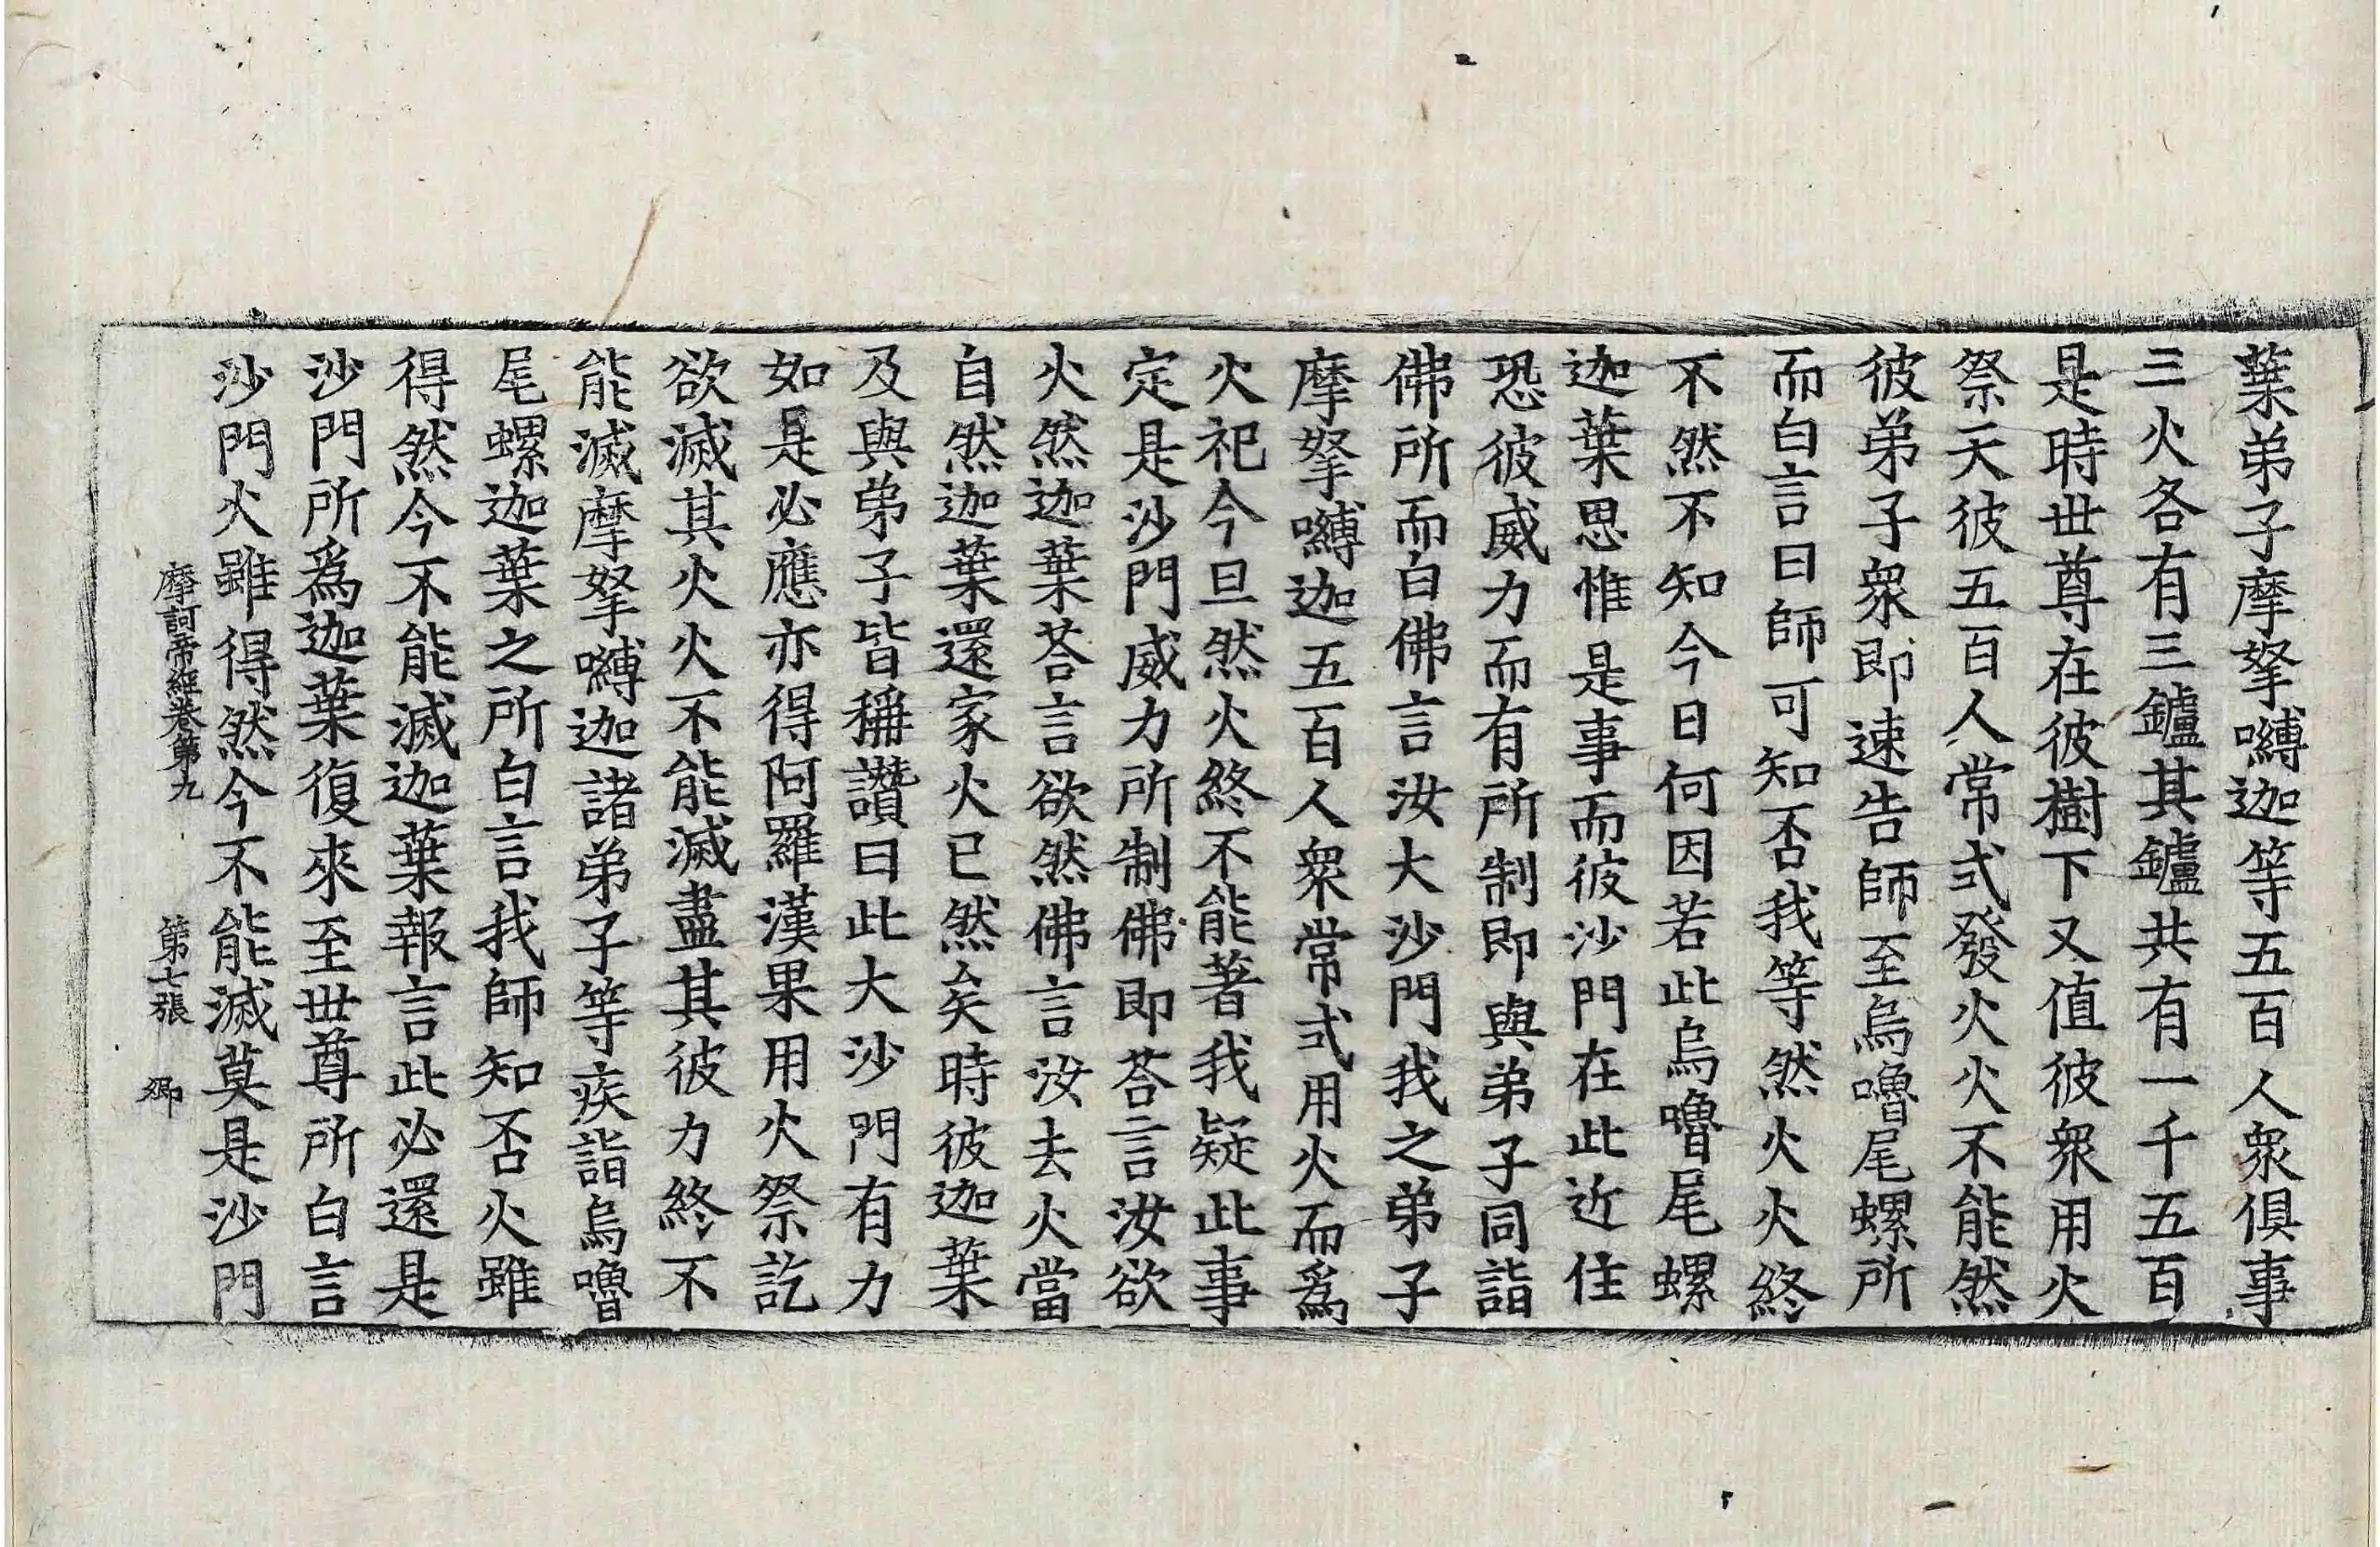 葉弟子摩拏嚩迦等五百人衆俱事
三火各有三鑪其鑪共有一千五百
是時世尊在彼樹下又值彼衆用火
祭天彼五百人常式發火火不能然
彼弟子衆即速告師至烏嚕尾螺所
而白言曰師可知否我等然火火終
不然不知今日何因若此烏嚕尾螺
迦葉思惟是事而彼沙門在此近住
恐彼威力而有所制即與弟子同詣
佛所而白佛言汝大沙門我之弟子
摩拏嚩迦五百人衆常式用火而爲
火祀今旦然火終不能著我疑此事
定是沙門威力所制佛即荅言汝欲
火然迦葉荅言欲然佛言汝去火當
自然迦葉還家火已然矣時彼迦葉
及與弟子皆稱讚曰此大沙門有力
如是必應亦得阿羅漢果用火祭訖
欲滅其火火不能滅盡其彼力終不
能滅摩拏嚩迦諸弟子等疾詣烏嚕
尾螺迦葉之所白言我師知否火雖
得然今不能滅迦葉報言此必還是
沙門所爲迦葉復來至世尊所白言
沙門火雖得然今不能滅莫是沙門
摩訶帝經卷第九 第七張 卿